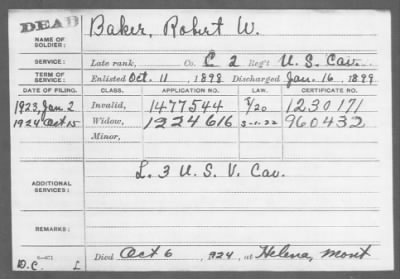 DEAD
NAME OF SOLDIER: Baker, Robert W.
SERVICE: Late rank, Co. C 2 Reg't U. S. Cav.
TERM OF SERVICE: Enlisted Oct. 11, 1898 Discharged Jan. 16, 1899
DATE OF FILING. CLASS. APPLICATION NO. LAW. CERTIFICATE NO.
1923, Jan. 2 Invalid, 1477544 1230171
1924 Oct 15 Widow, 1224616 960432
Minor,
ADDITIONAL SERVICES: L. 3 U. S. V. Cav.
REMARKS:
Died Oct 6, 924, at Helena, Mont
D.C. L